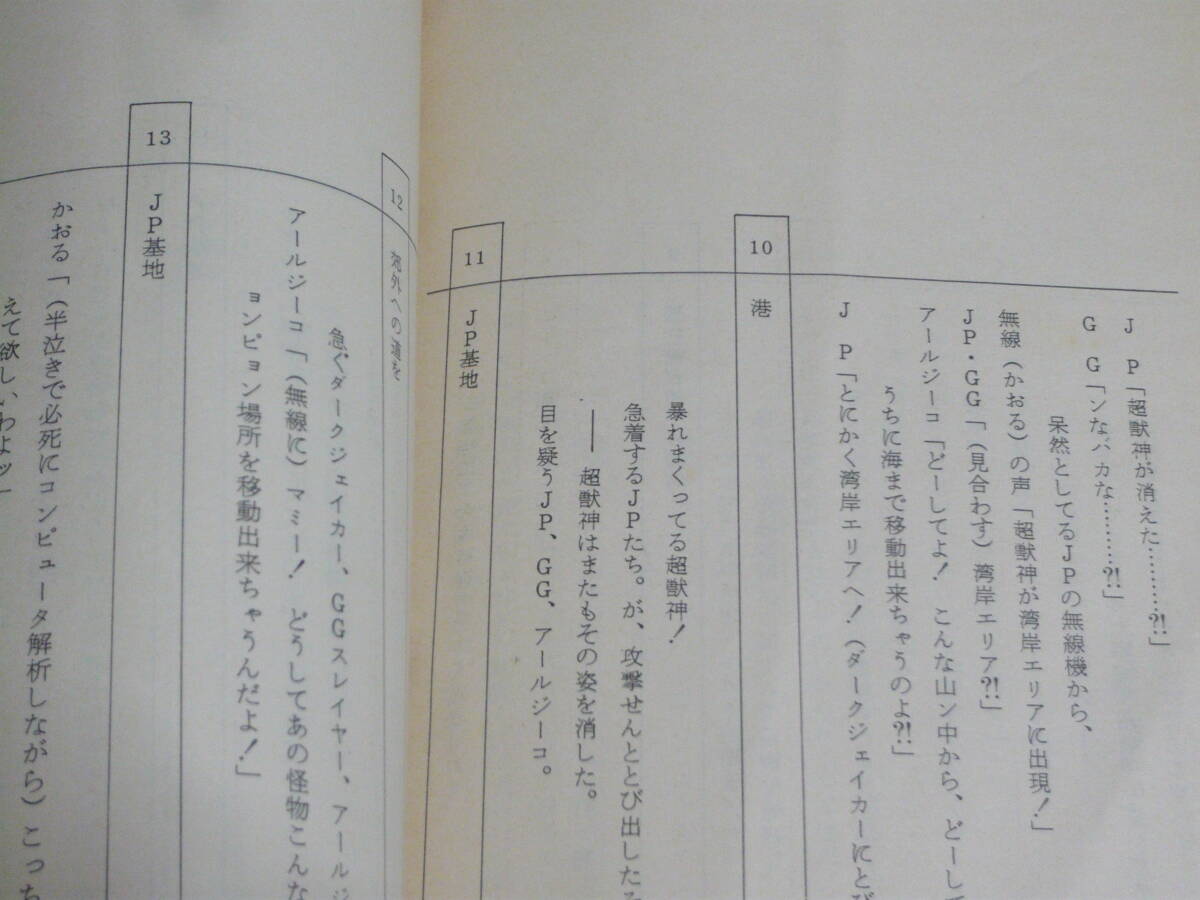 J P「超獣神が消えた…………?!」
G G「ンなバカな…………?!」
呆然としてるJPの無線機から、
無線(かおる)の声「超獣神が湾岸エリアに出現!」
JP・GG「(見合わす)湾岸エリア?!」
アールジーコ「どーしてよ! こんな山ン中から、どーして
うちに海まで移動出来ちゃうのよ?!」
J P「とにかく湾岸エリアへ!(ダークジェイカーにとび
10
港
暴れまくってる超獣神!
急着するJPたち。が、攻撃せんととび出した
――超獣神はまたもその姿を消した。
目を疑うJP、GG、アールジーコ。
11
JP基地
12
郊外への道を
急ぐダークジェイカー、GGスレイヤー、アールジ
アールジーコ「(無線に)マミー! どうしてあの怪物こんな
ョンピョン場所を移動出来ちゃうんだよ!」
13
JP基地
かおる「(半泣きで必死にコンピュータ解析しながら)こっち
えて欲しいわよッ」